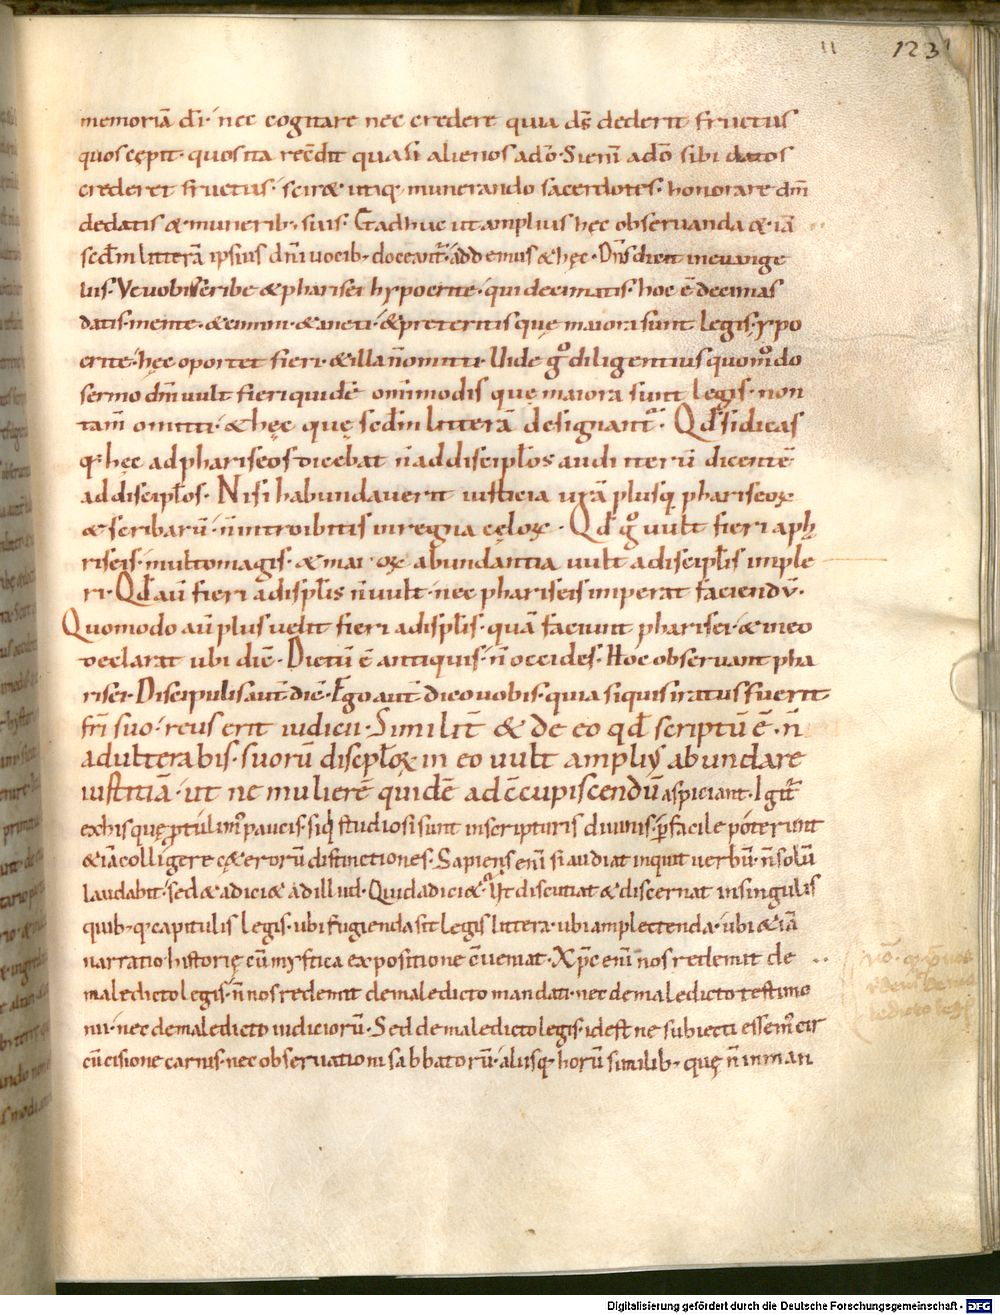 11 123
memoriā dī· nec cogitare nec credere quia ds̄ dederit fructus
quos cępit· quos ita recōdit quasi alienos a dō· Si enī a dō sibi datos
crederet fructus· sciret utiq; munerando sacerdotes· honorare dm̄
de datis & munerib; suis· Et adhuc ut amplius hęc obseruanda & iā
scd̄m litterā ipsius dn̄i uocib; doceant᷑· addemus & hęc· Dn̄s dicit in euange
liis· Ve uobis scribe & pharisei hypocrite· qui decimatis hoc ē decimas
datis· mente· & cimini· & aneti· & preteritis quę maiora sunt legis· ypo
crite· hęc oportet fieri· & illa n̄ omitti· Uide gͦ diligentius quom̊do
sermo dn̄i uult fieri quidē omīmodis quę maiora sunt legis· non
tam̄ omitti· & hęc quę scd̄m litterā designant᷑· Qd̄ si dicas
qͥ hęc ad phariseos dicebat n̄ ad discipl̄os audi iterū dicentē
ad discipl̄os· Nisi habundauerit iusticia ur̄a plusq̄ phariseoꝝ
& scribarū· n̄ introibitis in regna cęloꝝ· Qd̄ gͦ uult fieri a phą
riseis· multo magis· & maioꝝ abundantia uult a discipl̄is imple
ri· Qd̄ aū fieri a displ̄is n̄ uult· nec phariseis imperat faciendū·
Quomodo aū plus uelit fieri a displ̄is· quā faciunt pharisei· & in eo
declarat ubi diē· Dictū ē antiquis· n̄ occides· Hoc obseruant pha
risei· Discipulis aūt diē· Ego aūt dico uobis· quia siquis iratus fuerit
frī suo· reus erit iudicii· Similit̄ & de eo qd̄ scriptū ē· n̄
adulterabis· suorū discipl̄oꝝ in eo uult ampliꝰ abundare
iustitiā· ut ne mulierē quidē ad cc̄upiscendū aspiciant· Igit᷑
ex his quę ꝓtulim᷒ paucis· siq̇ studiosi sunt in scripturis diuinis· p̄facile poterunt
& iā colligere cęterorū distinctiones· Sapiens enī si audiat inquit uerbū· n̄ solū
laudabit· sed & adici& ad illud· Quid adici&· Ut discutiat & discernat in singulis
quib;q; capitulis legis· ubi fugienda sit legis littera· ubi amplectenda· ubi & iā
narratio historię cū mystica expositione cūeniat· Xp̄c enī nos redemit de
maledicto legis· n̄ nos redemit de maledicto mandati· nec de maledicto testimo
nii· nec de maledicto iudiciorū· Sed de maledicto legis· id est ne subiecti essem᷒ cir
cū cisione carnis· nec obseruationi sabbatorū· aliisq; horū similib; quę n̄ in man
Digitalisierung gefördert durch die Deutsche Forschungsgemeinschaft - DFG